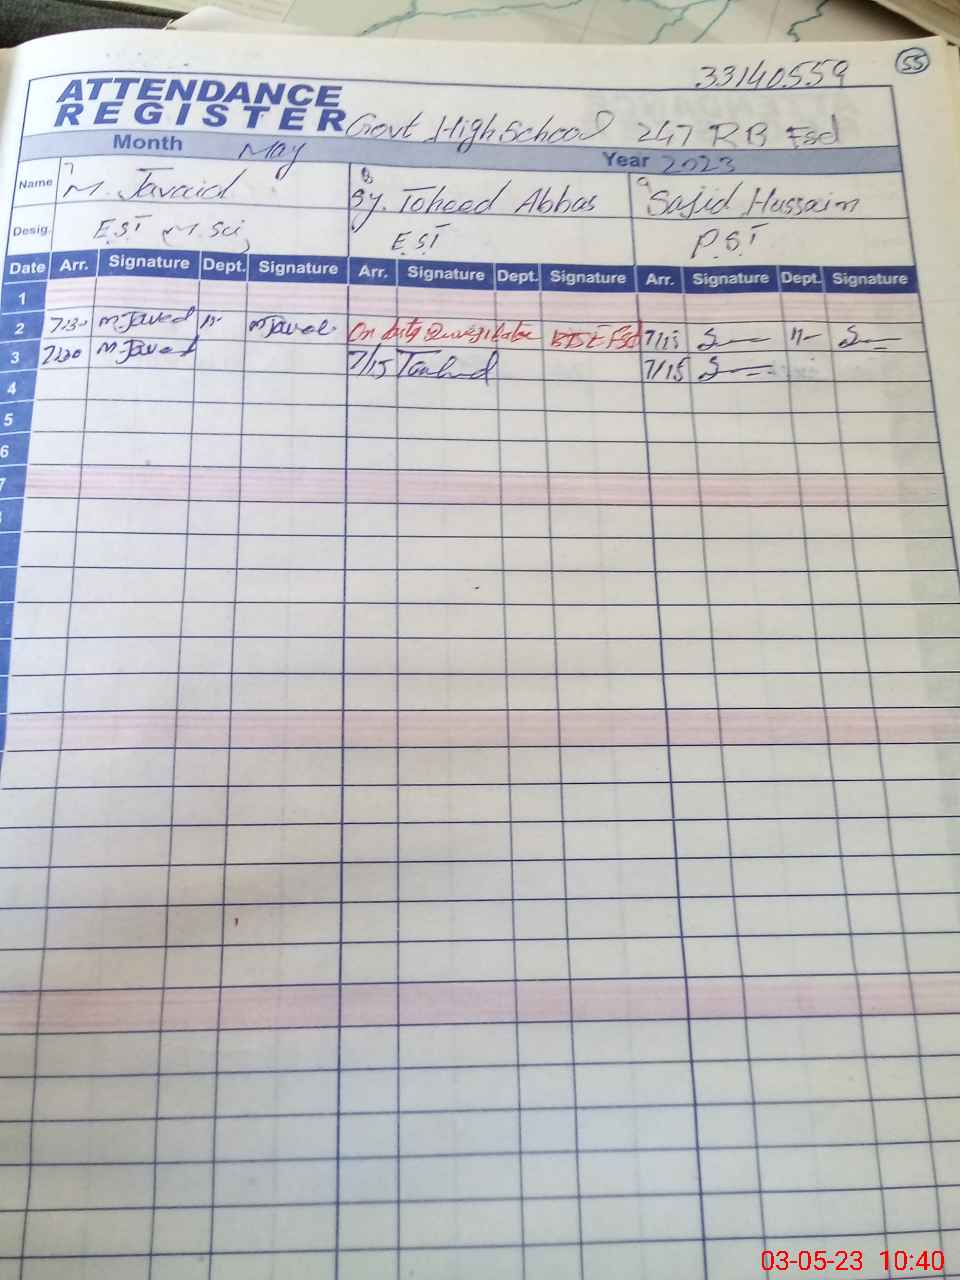 33140559 55
ATTENDANCE
REGISTER Govt High School 247 RB Fsd
Month May Year 2023
Name 7 M. Javaid 8 Sy. Toheed Abbas 9 Sajid Hussain
Desig. EST M. Sci EST P.S.T
Date Arr. Signature Dept. Signature Arr. Signature Dept. Signature Arr. Signature Dept. Signature
1
2 7:30 M. Javed M Javed On duty 7/15
3 7:20 M. Javed 7/15 7/15
4
5
6
7
03-05-23 10:40